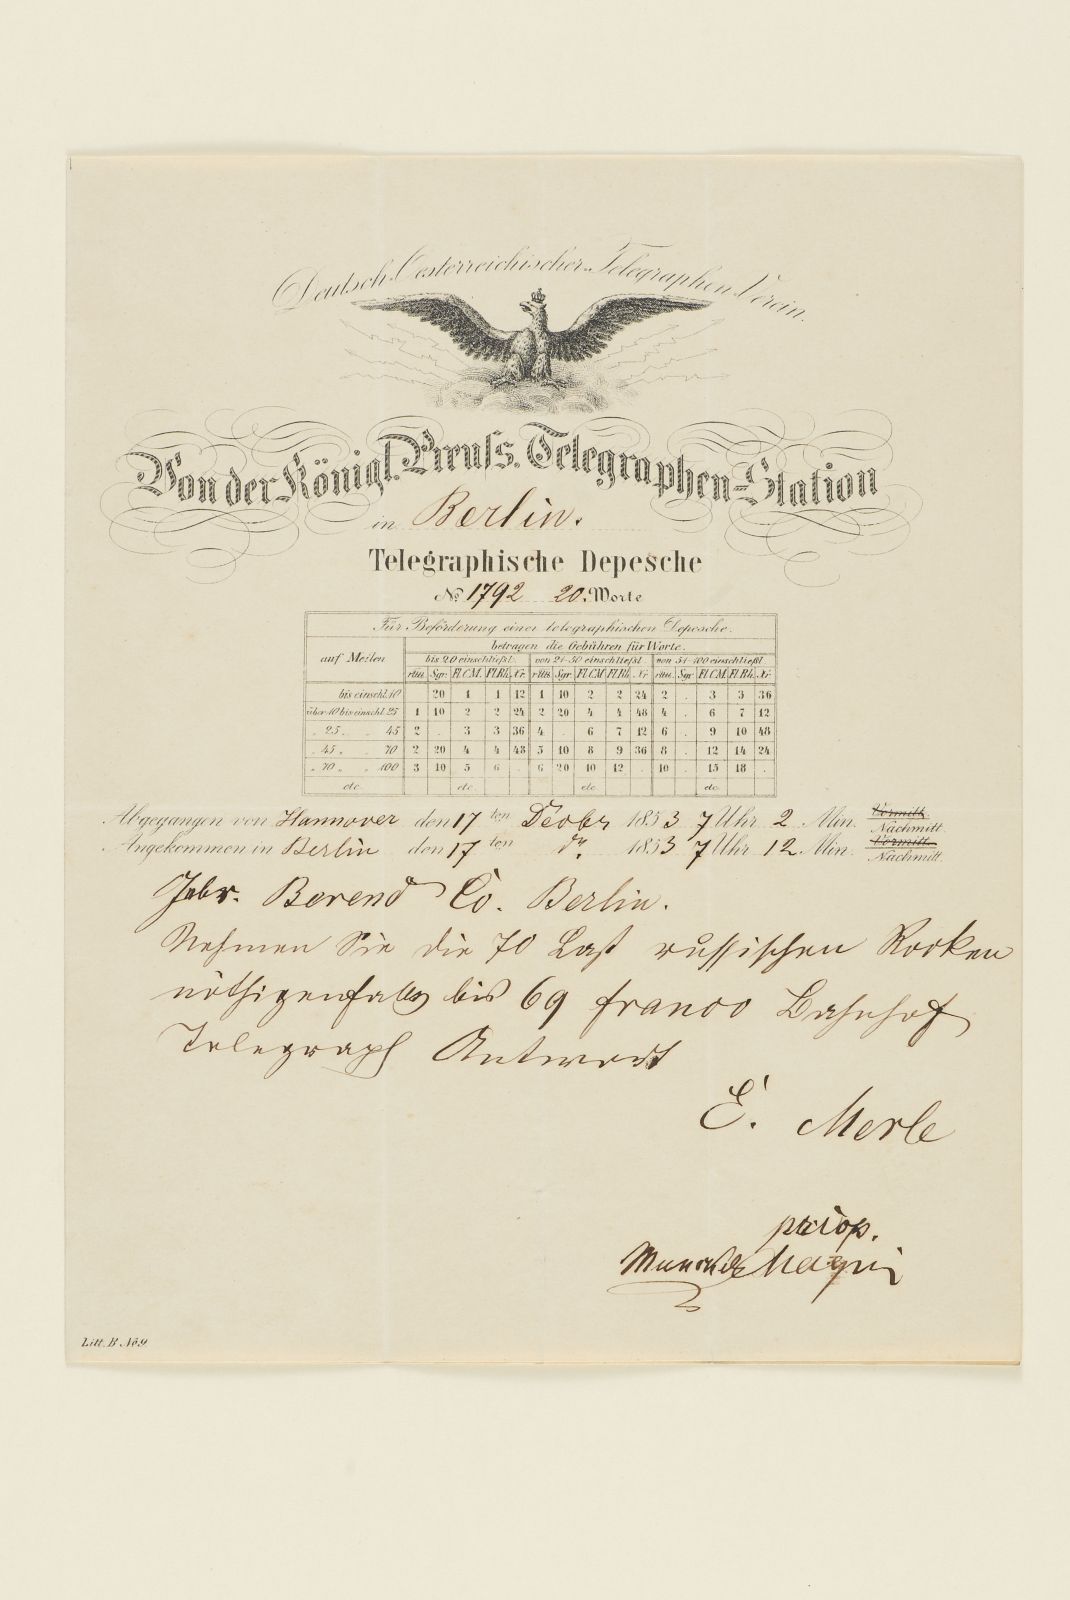 Deutsch-Oesterreichischer-Telegraphen-Verein.
Von der Königl. Preuſs. Telegraphen-Station
in Berlin.
Telegraphische Depesche
No. 1792 20. Worte
Für Beförderung einer telegraphischen Depesche.
auf Meilen betragen die Gebühren für Worte.
bis 20 einschließl. von 21-50 einschließl. von 51-100 einschließl.
rtlr. Sgr. Fl.C.M. Fl.Rh. Xr. rtlr. Sgr. Fl.C.M. Fl.Rh. Xr. rtlr. Sgr. Fl.C.M. Fl.Rh. Xr.
bis einschl. 10 . 20 1 1 12 1 10 2 2 24 2 . 3 3 36
über 10 bis einschl. 25 1 10 2 2 24 2 20 4 4 48 4 . 6 7 12
„ 25 „ „ 45 2 . 3 3 36 4 . 6 7 12 6 . 9 10 48
„ 45 „ „ 70 2 20 4 4 48 5 10 8 9 36 8 . 12 14 24
„ 70 „ „ 100 3 10 5 6 . 6 20 10 12 . 10 . 15 18 .
etc. etc. etc. etc.
Abgegangen von Hannover den 17 ten Decbr 1853 7 Uhr 2 Min. Vormitt. Nachmitt.
Angekommen in Berlin den 17 ten do. 1853 7 Uhr 12 Min. Vormitt. Nachmitt.
Gebr. Berend Co. Berlin.
Nehmen Sie die 70 Last russischen Rocken
nöthigenfalls bis 69 franco Bahnhof
Telegraph Antwort
E. Merle
Litt. B. No. 9.